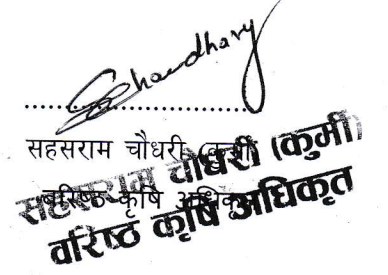 Chaudhary
........................................
सहसराम चौधरी (कुर्मी)
बरिष्ठ कृषि अधिकृत
सहसराम चौधरी (कुर्मी)
वरिष्ठ कृषि अधिकृत